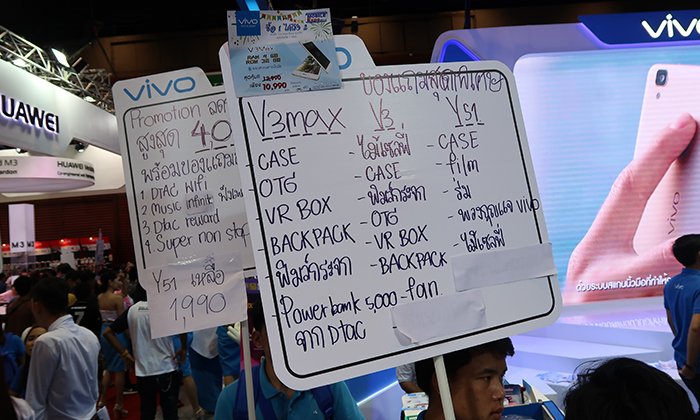 HUAWEI
M3
HUAWEI M
M3 M3
vivo
Promotion ลด
สูงสุด 4,0
พร้อมของแถม
1 DTAC wifi
2 Music infinit ฟังเพ
3 Dtac reward
4 Super non stop
Y51 เหลือ
1,990
vivo
V3Max
10,990
vivo
ของแถมสุดพิเศษ
V3max V3 Y51
CASE - ไม้เซลฟี่ - CASE
OTG - CASE - film
VR BOX - ฟิล์มกระจก - ร่ม
- BACKPACK - OTG - พวงกุญแจ VIVO
- ฟิล์มกระจก - VR BOX - ไม้เซลฟี่
- BACKPACK
- Power bank 5,000 - fan
จาก Dtac
vivo
ด้วยระบบสแกนนิ้วมือที่ทำให้